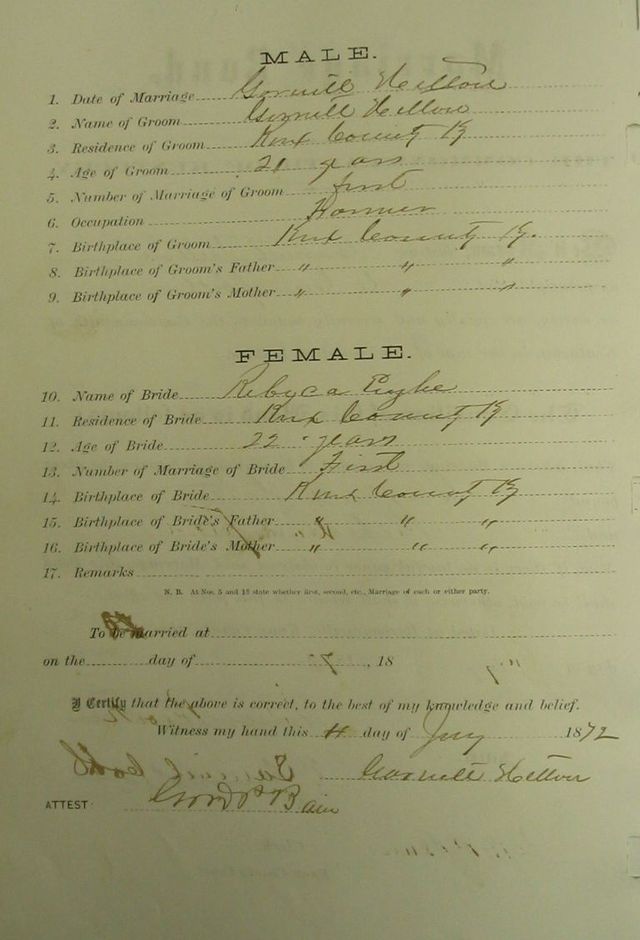 MALE.
1. Date of Marriage
2. Name of Groom
3. Residence of Groom Knx County Ky
4. Age of Groom 21 years
5. Number of Marriage of Groom first
6. Occupation Farmer
7. Birthplace of Groom Knx County Ky.
8. Birthplace of Groom's Father " " "
9. Birthplace of Groom's Mother " " "
FEMALE.
10. Name of Bride Rebyca
11. Residence of Bride Knx County Ky
12. Age of Bride 22 years
13. Number of Marriage of Bride First
14. Birthplace of Bride Knx County Ky
15. Birthplace of Bride's Father " " "
16. Birthplace of Bride's Mother " " "
17. Remarks
N. B. At Nos. 5 and 13 state whether first, second, etc., Marriage of each or either party.
To be married at
on the day of , 18
I Certify that the above is correct, to the best of my knowledge and belief.
Witness my hand this day of 1872
ATTEST: